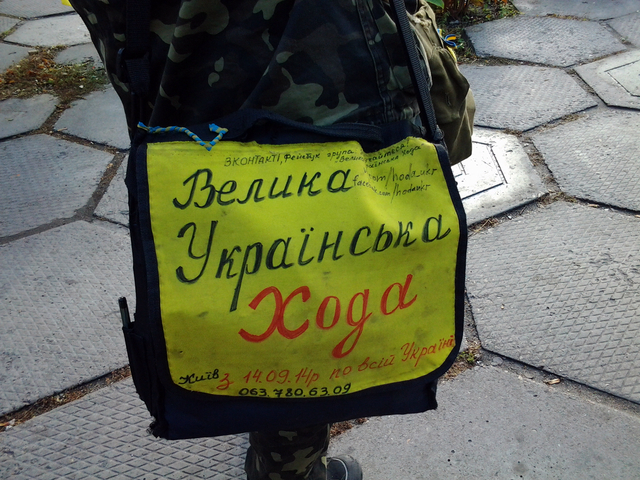 ЗКОНТАКТІ, Фейсбук група
"Велика
Українська Хода
com/hoda.ukr
facebook.com/hodaukr
Велика
Українська
Хода
Київ з 14.09.14р по всій Україні
063.780.63.09